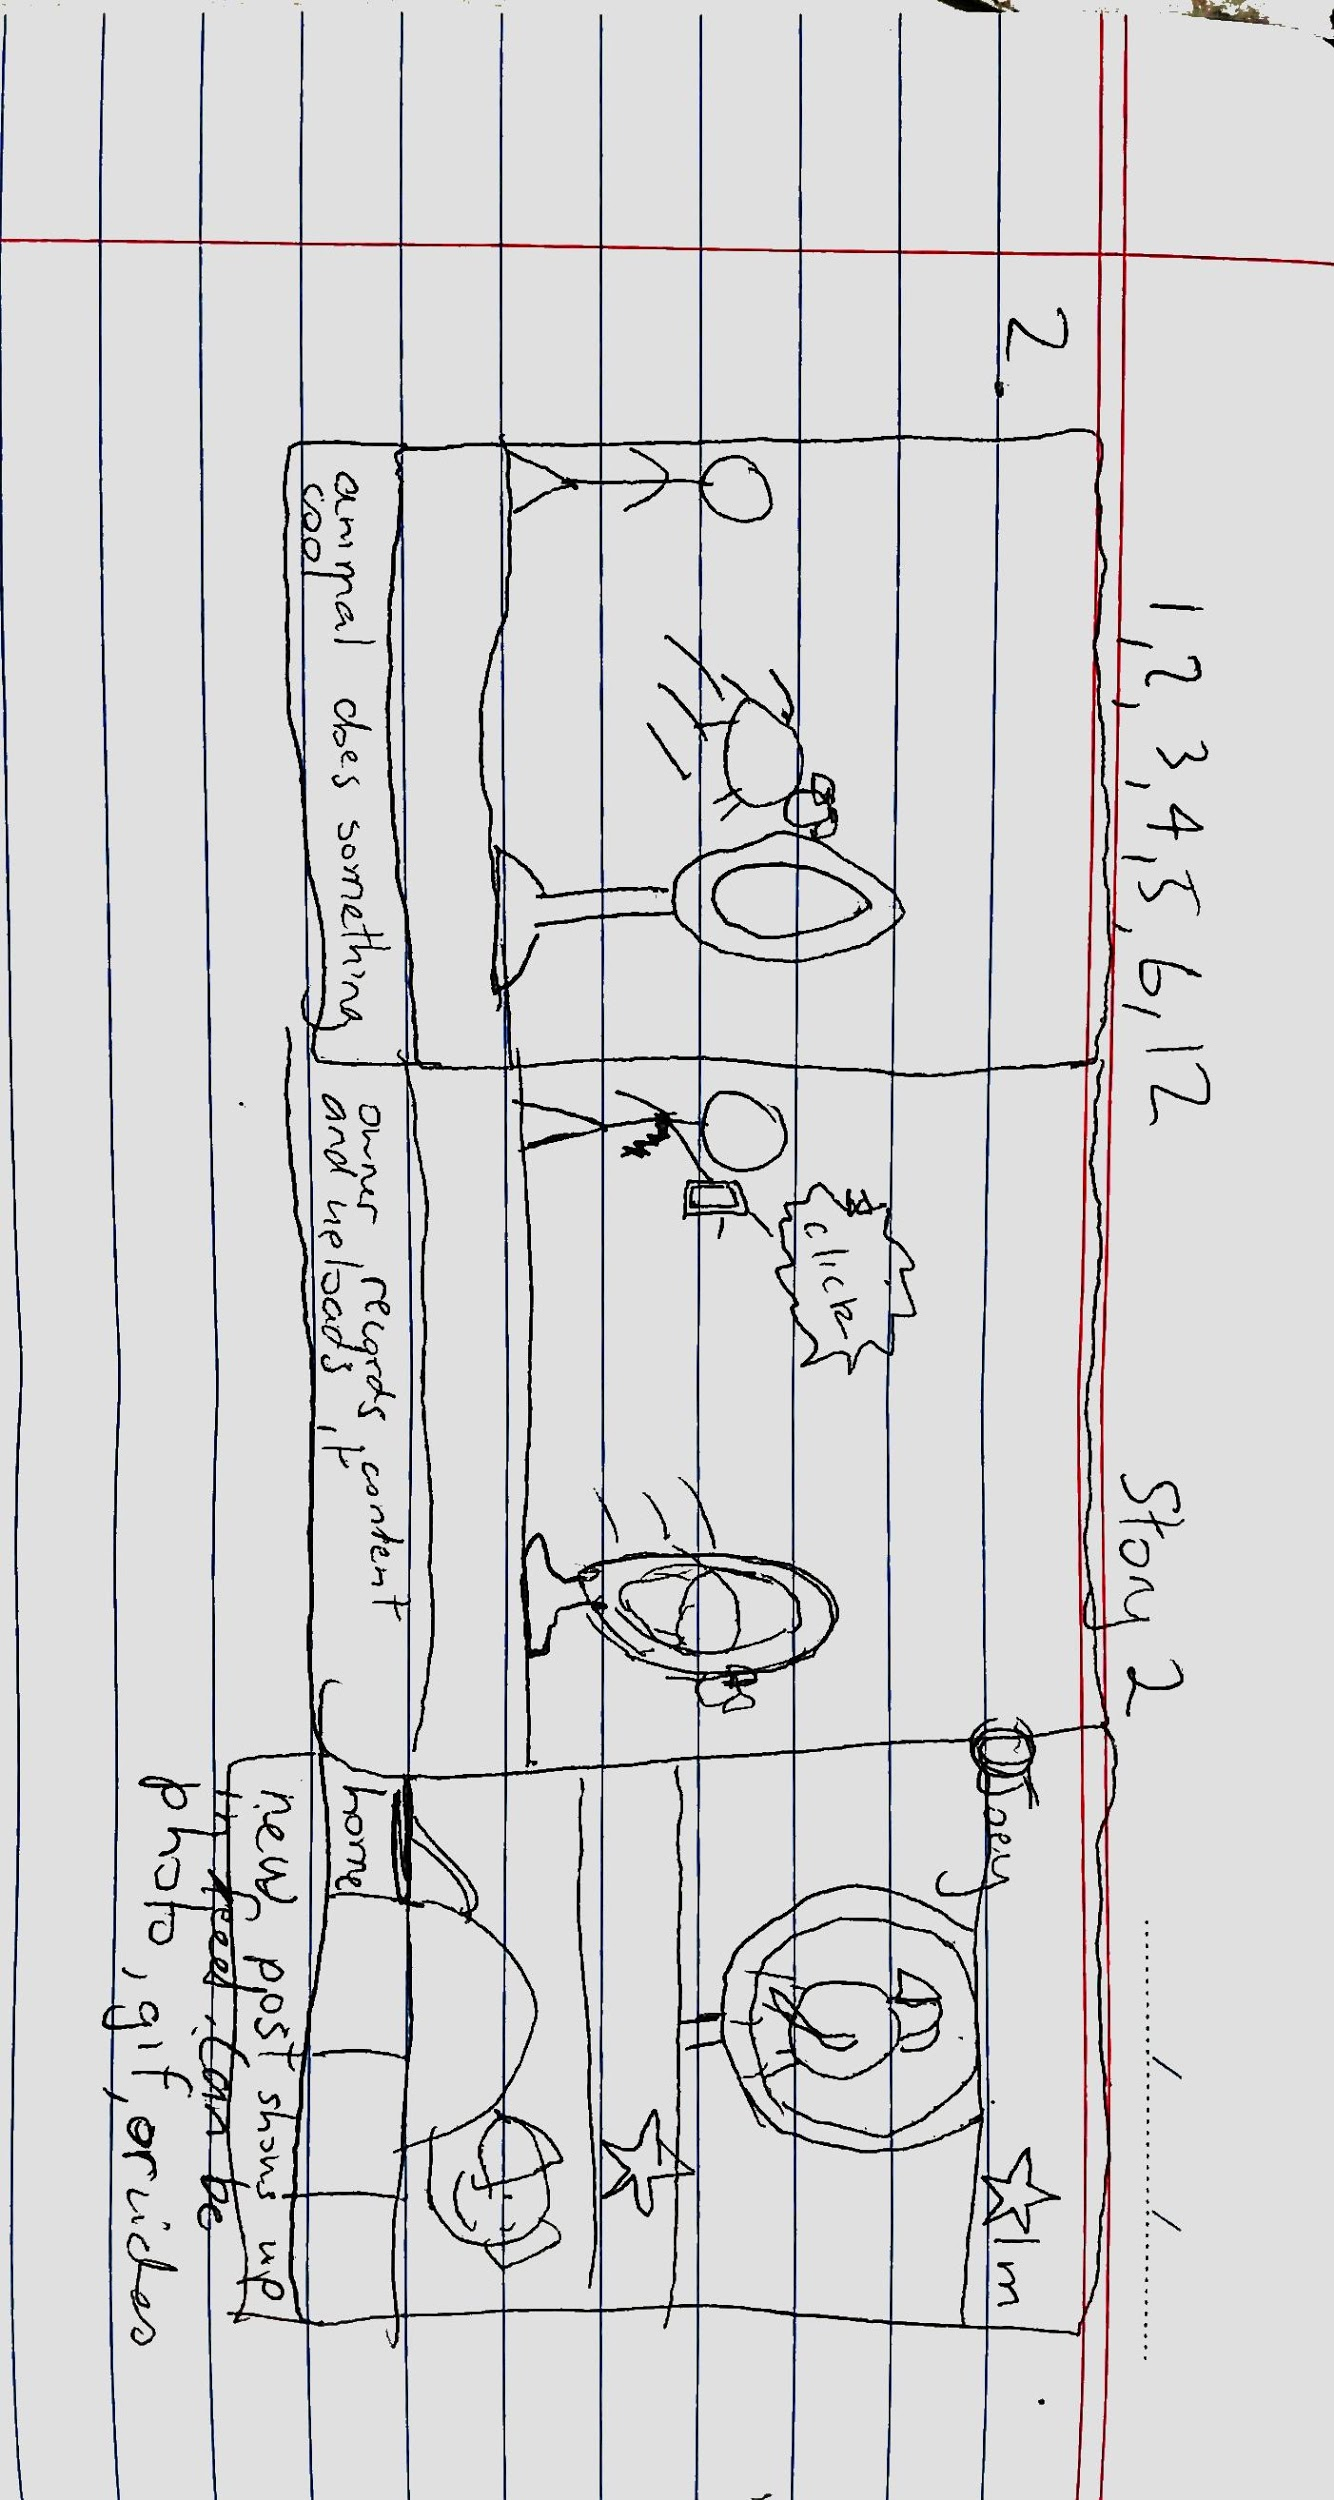 1, 2, 3, 4, 5, 6, 12
Story 2
2.
animal does something
cool
click
owner records content
and uploads it
Joey
1m
home
new post shows up
in feed. Can be
photo, gif, or video